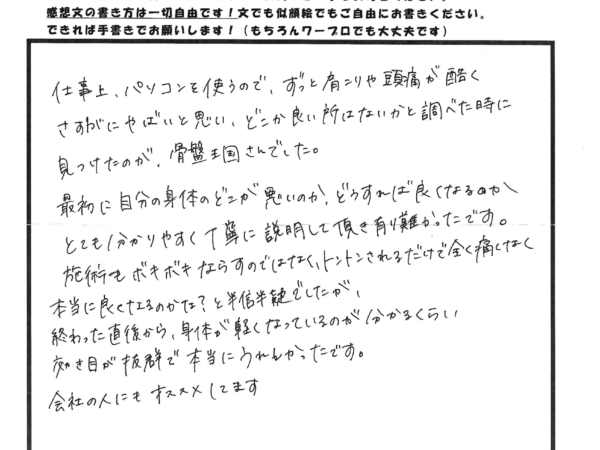 感想文の書き方は一切自由です！文でも似顔絵でもご自由にお書きください。
できれば手書きでお願いします！（もちろんワープロでも大丈夫です）
仕事上、パソコンを使うので、ずっと肩こりや頭痛が酷く
さすがにやばいと思い、どこか良い所はないかと調べた時に
見つけたのが、骨盤王国さんでした。
最初に自分の身体のどこが悪いのか、どうすれば良くなるのか、
とても分かりやすく丁寧に説明して頂き有り難かったです。
施術もボキボキならすのではなく、トントンされるだけで全く痛くなく
本当に良くなるのかな？と半信半疑でしたが、
終わった直後から、身体が軽くなっているのが分かるくらい
効き目が抜群で本当にうれしかったです。
会社の人にもオススメしてます